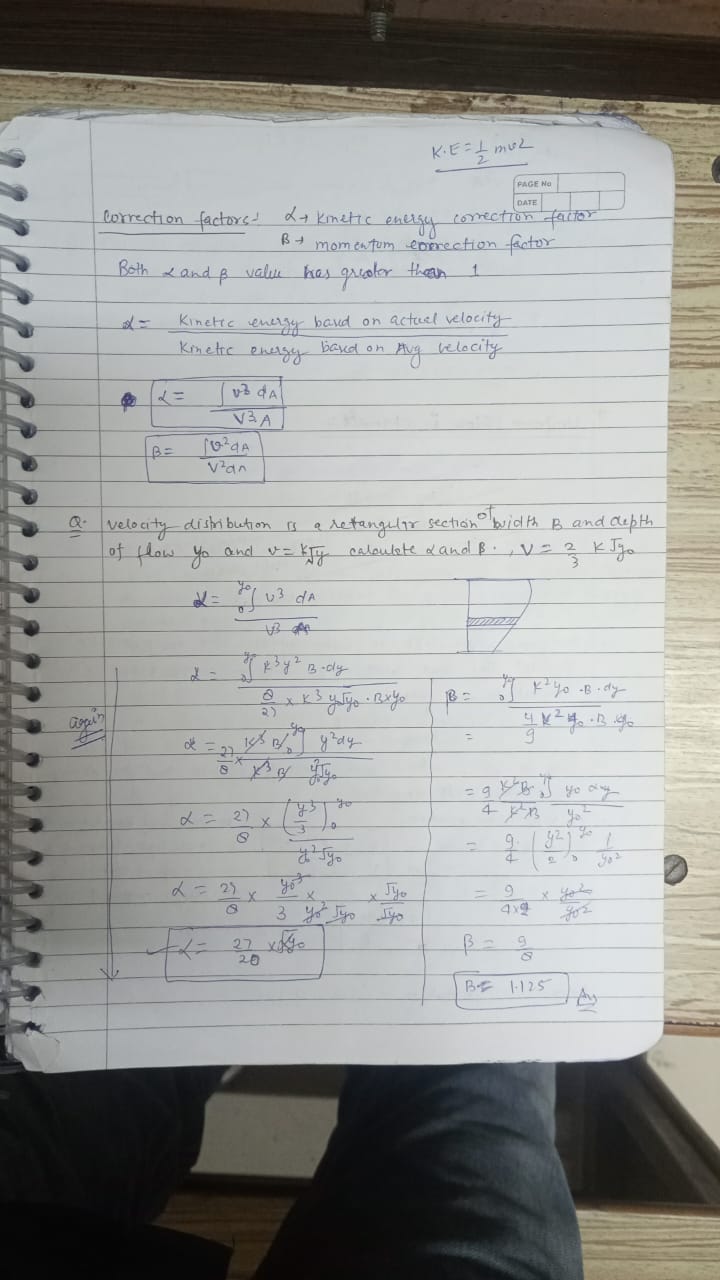 K.E = 1/2 mv2
PAGE No
DATE
Correction factors: α → Kinetic energy correction factor
β → momentum correction factor
Both α and β value has greater than 1
α = Kinetic energy based on actual velocity
Kinetic energy based on Avg velocity
α = ∫v³ dA
V³ A
β = ∫v² dA
V² dA
Q. velocity distribution is a retangular section of width B and depth
of flow y₀ and v = K√y calculate α and β. , V = 2/3 K √y₀
α = ₀∫^y₀ v³ dA
V³
α = ₀∫^y₀ K³ y² B·dy
8/27 × K³ y₀√y₀ · B × y₀
again
α = 27/8 × K³ B ₀∫^y₀ y² dy
K³ B y₀²√y₀
α = 27/8 × (y³/3)₀^y₀
y₀² √y₀
α = 27/8 × y₀³/3 × y₀² √y₀ × √y₀/√y₀
α = 27/20 × √y₀
β = ₀∫^y₀ K² y₀ · B · dy
= 4/9 K² y₀ · B · y₀
= 9/4 K² B ₀∫^y₀ y₀ dy
K² B y₀²
= 9/4 (y²/2)₀^y₀ 1/y₀²
= 9/4×2 × y₀²/y₀²
β = 9/8
B = 1.125 Ans